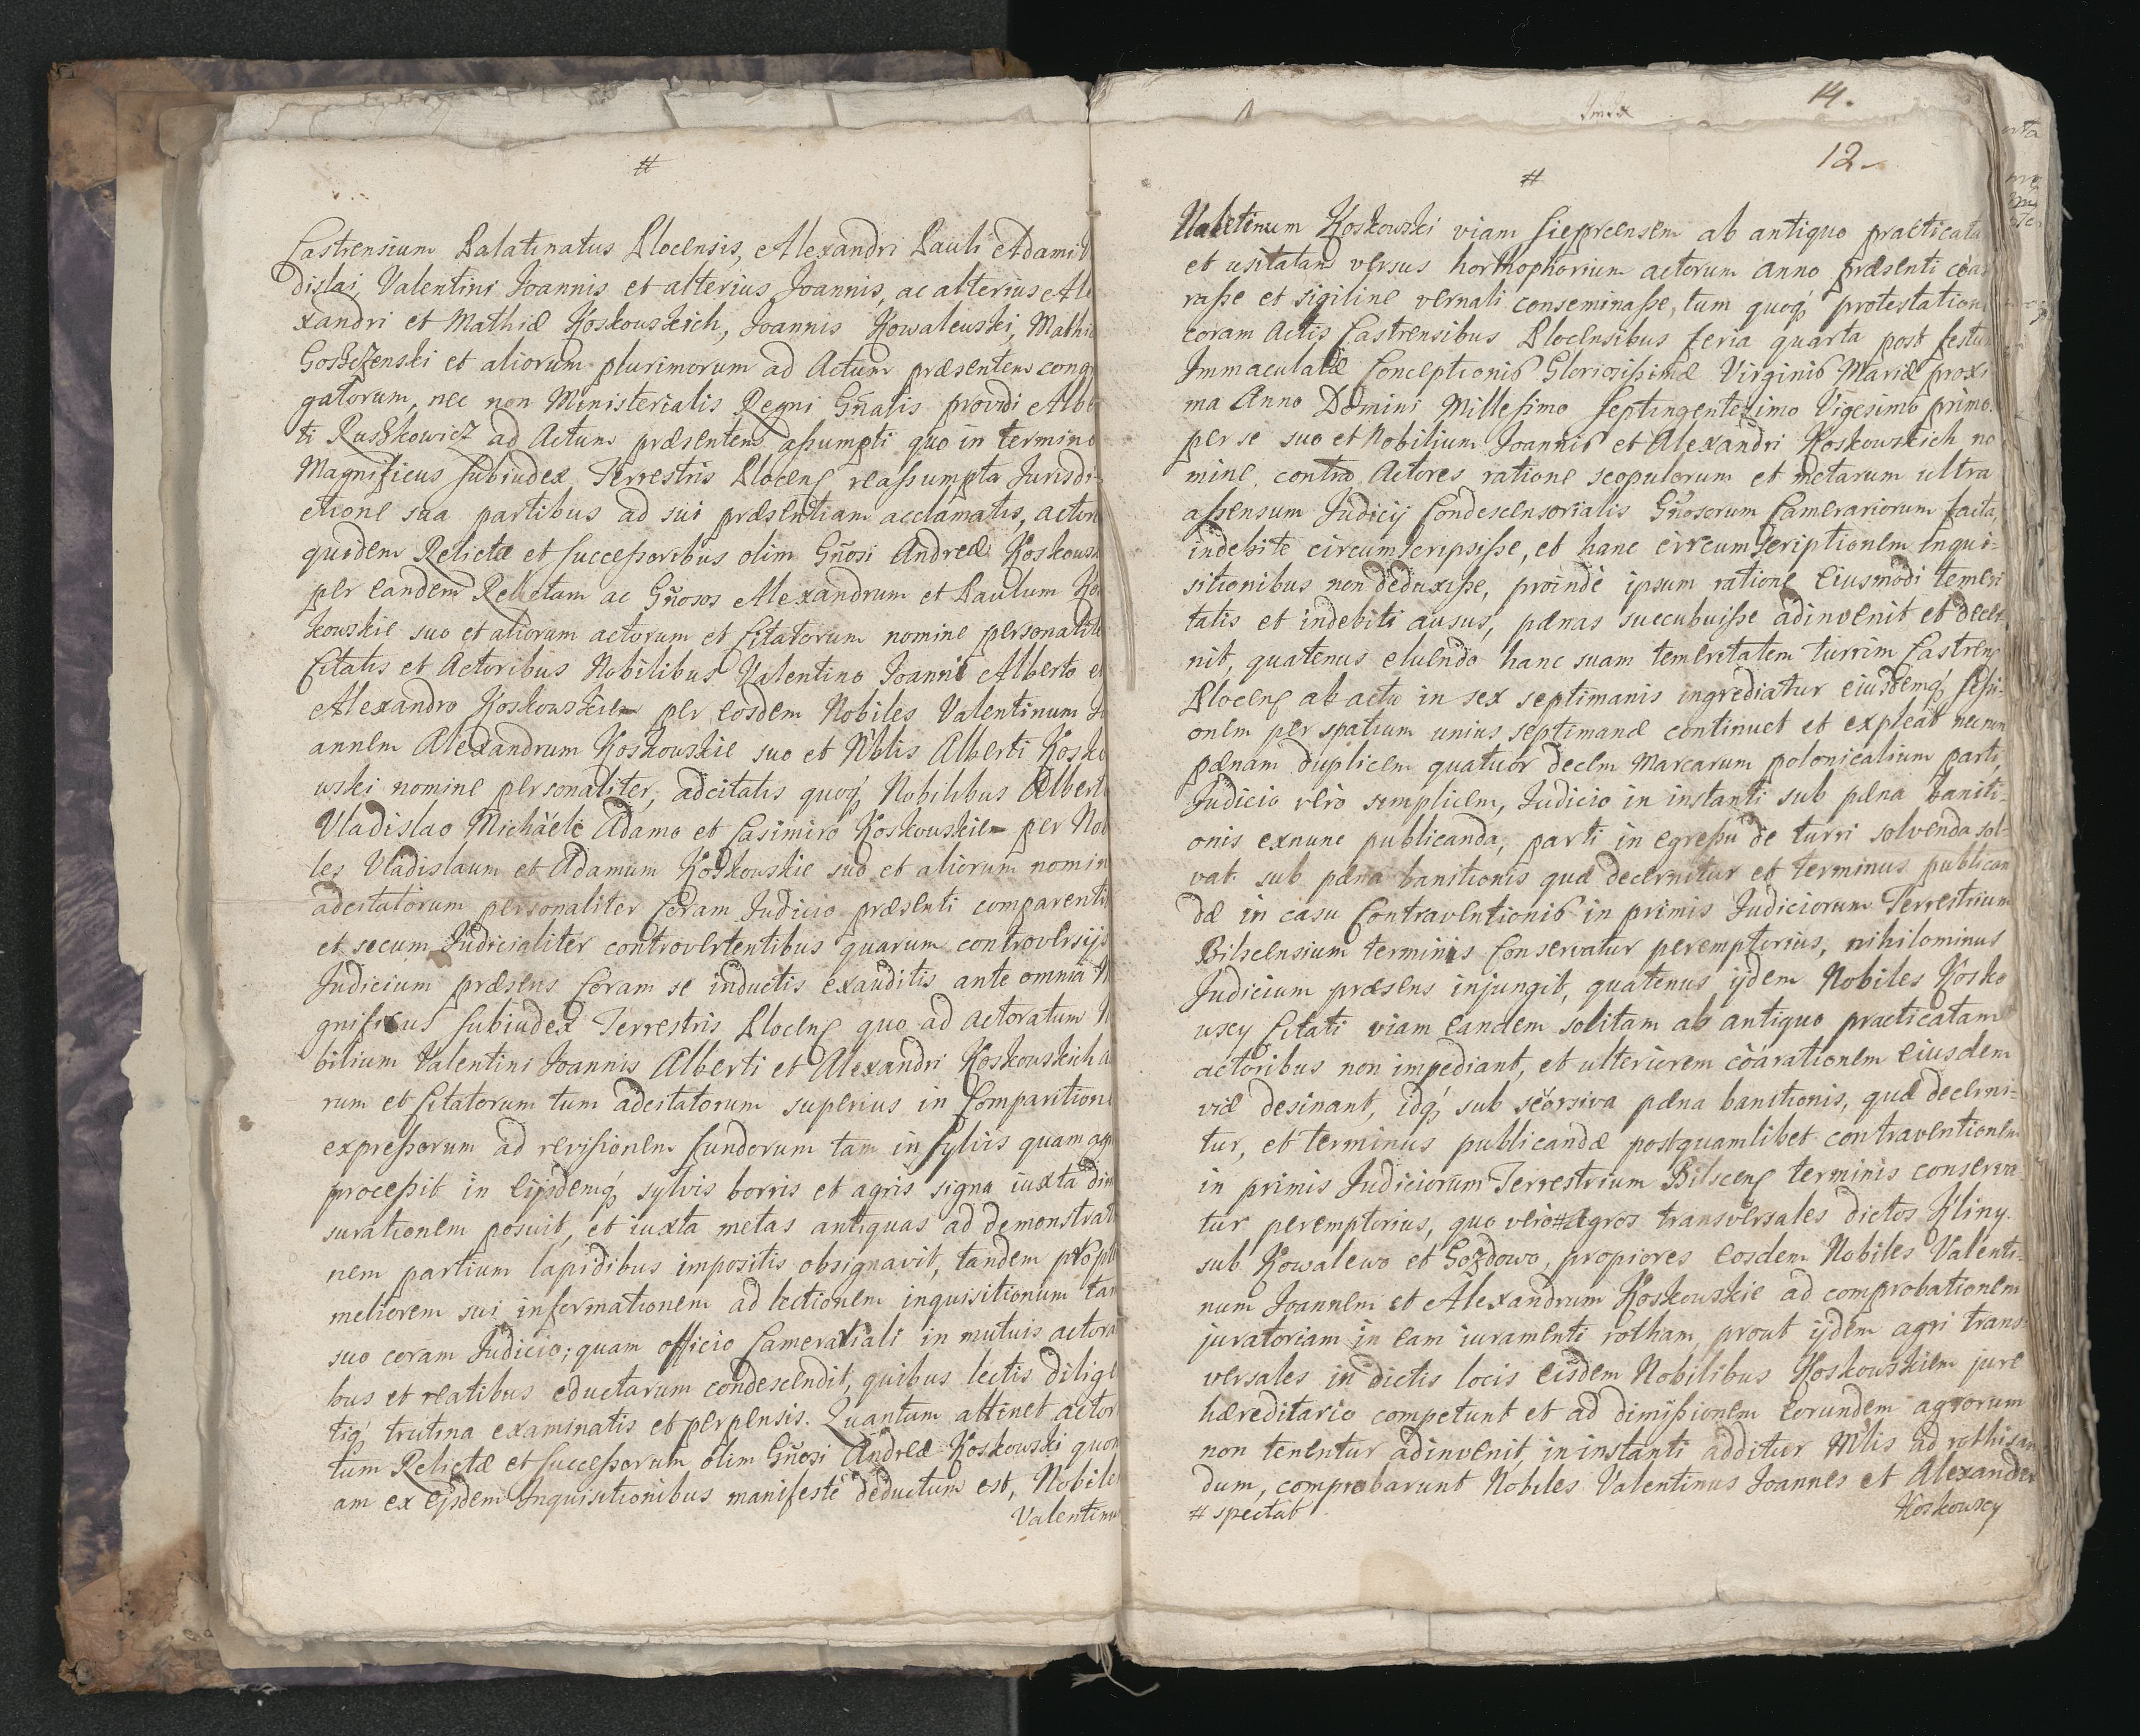 #
Castrensium Palatinatus Plocensis, Alexandri Pauli Adami
dislai, Valentini Joannis et alterius Joannis, ac alterius Ale
xandri et Mathiæ Koskowskich, Joannis Kowalewski, Mathiæ
Goszczenski et aliorum plurimorum ad Actum præsentem congr
gatorum, nec non Ministerialis Regni Gñalis providi Albe
ti Ruszkowicz ad Actum præsentem aßumpti quo in termino
Magnificus Subiudex Terrestris Plocenß reaßumpta Jurisdi-
ctione sua partibus ad sui præsentiam acclamatis, actori
quidem Relictæ et Succeßoribus olim Gñosi Andreæ Koskowsk
per eandem Relictam ac Gñosos Alexandrum et Paulum Kos
kowskie suo et aliorum actorum et Citatorum nomine personalite
Citatis et Actoribus Nobilibus Valentino Joanni Alberto et
Alexandro Koskowskiem per eosdem Nobiles Valentinum Jo
annem Alexandrum Koskowskie suo et Nblis Alberti Kosko
wski nomine personaliter, adcitatis quoq Nobilibus Alberto
Vladislao Michaele Adamo et Casimiro Koskowskiem per Nobi
les Vladislaum et Adamum Koskowskie suo et aliorum nomin
adcitatorum personaliter Coram Judicio præsenti comparenti
et secum Judicialiter controvertentibus quarum controversijs
Judicium præsens Coram se inductis exauditis ante omnia M
gnificus Subiudex Terrestris Plocenß quo ad actoratum N
bilium Valentini Joannis Alberti et Alexandri Koskowskich a
rum et Citatorum tum adcitatorum superius in Comparitione
expreßorum ad revisionem fundorum tam in Sylvis quam agr
proceßit in eijsdemq sylvis borris et agris signa iuxta dim
surationem posuit, et iuxta metas antiquas ad demonstrati
nem partium lapidibus impositis obsignavit, tandem propte
meliorem sui informationem ad lectionem inquisitionum tam
suo coram Judicio; quam officio Camerariali in mutuis actora
bus et reatibus eductarum condescendit, quibus lectis dilige
tiq trutina examinatis et perpensis. Quantum attinet actor
tum Relictæ et Succeßorum olim Gñosi Andreæ Koskowski quon
am ex ejsdem Inquisitionibus manifestè deductum est, Nobile
Valentinu
Index
14.
12
#
Valetinum Koskowski viam Sieprcensem ab antiquo practicata
et usitatam versus horthophorium actorum anno præsenti coar
raße et sigiline vernali conseminaße, tum quoq protestation
coram Actis Castrensibus Plocensibus feria quarta post festum
Immaculatæ Conceptionis Gloriosißimæ Virginis Mariæ proxi
ma Anno Domini Millesimo Septingentesimo Vigesimo primo
per se suo et Nobilium Joannis et Alexandri Koskowskich no
mine, contra Actores ratione scopulorum et metarum ultra
aßensum Judicij Condescensorialis Gñosorum Camerariorum facta,
indebitè circumscripsiße, et hanc circumscriptionem Inqui=
sitionibus non deduxiße, proindè ipsum ratione eiusmodi temeri
tatis et indebiti ausus, pænas succubuiße adinvenit et decer
nit, quatenus eluendo hanc suam temeritatem turrim Castrenß
Plocenß ab actu in sex septimanis ingrediatur eiusdemq Seßi-
onem per spatium unius septimanæ continuet et expleat necnon
pænam duplicem quatuor decem Marcarum polonicalium parti,
Judicio vero simplicem, Judicio in instanti sub pæna baniti-
onis exnunc publicanda, parti in egreßu de turri solvenda sol-
vat sub pæna banitionis quæ decernitur et terminus publican
dæ in casu Contraventionis in primis Judiciorum Terrestrium
Bilscensium terminis Conservatur peremptorius, nihilominus
Judicium præsens injungit, quatenus ijdem Nobiles Kosko
wscy Citati viam eandem solitam ab antiquo practicatam
actoribus non impediant, et ulteriorem coarationem eiusdem
viæ desinant, idq sub seorsiva pæna banitionis, quæ decerni-
tur, et terminus publicandæ postquamlibet contraventionem
in primis Judiciorum Terrestrium Bilscenß terminis conserva
tur peremptorius, quo vero # Agros transversales dictos Kliny.
sub Kowalewo et Gozdowo, propiores eosdem Nobiles Valenti-
num Joannem et Alexandrum Koskowskie ad comprobationem
juratoriam in eam iuramenti rotham, prout ijdem agri trans-
versales in dictis locis eisdem Nobilibus Koskowskiem jure
hæreditario competunt et ad dimißionem eorundem agrorum
non tenentur adinvenit, in instanti additur Mlis ad rothisan
dum, comprobarunt Nobiles Valentinus Joannes et Alexander
# spectat
Koskowscy